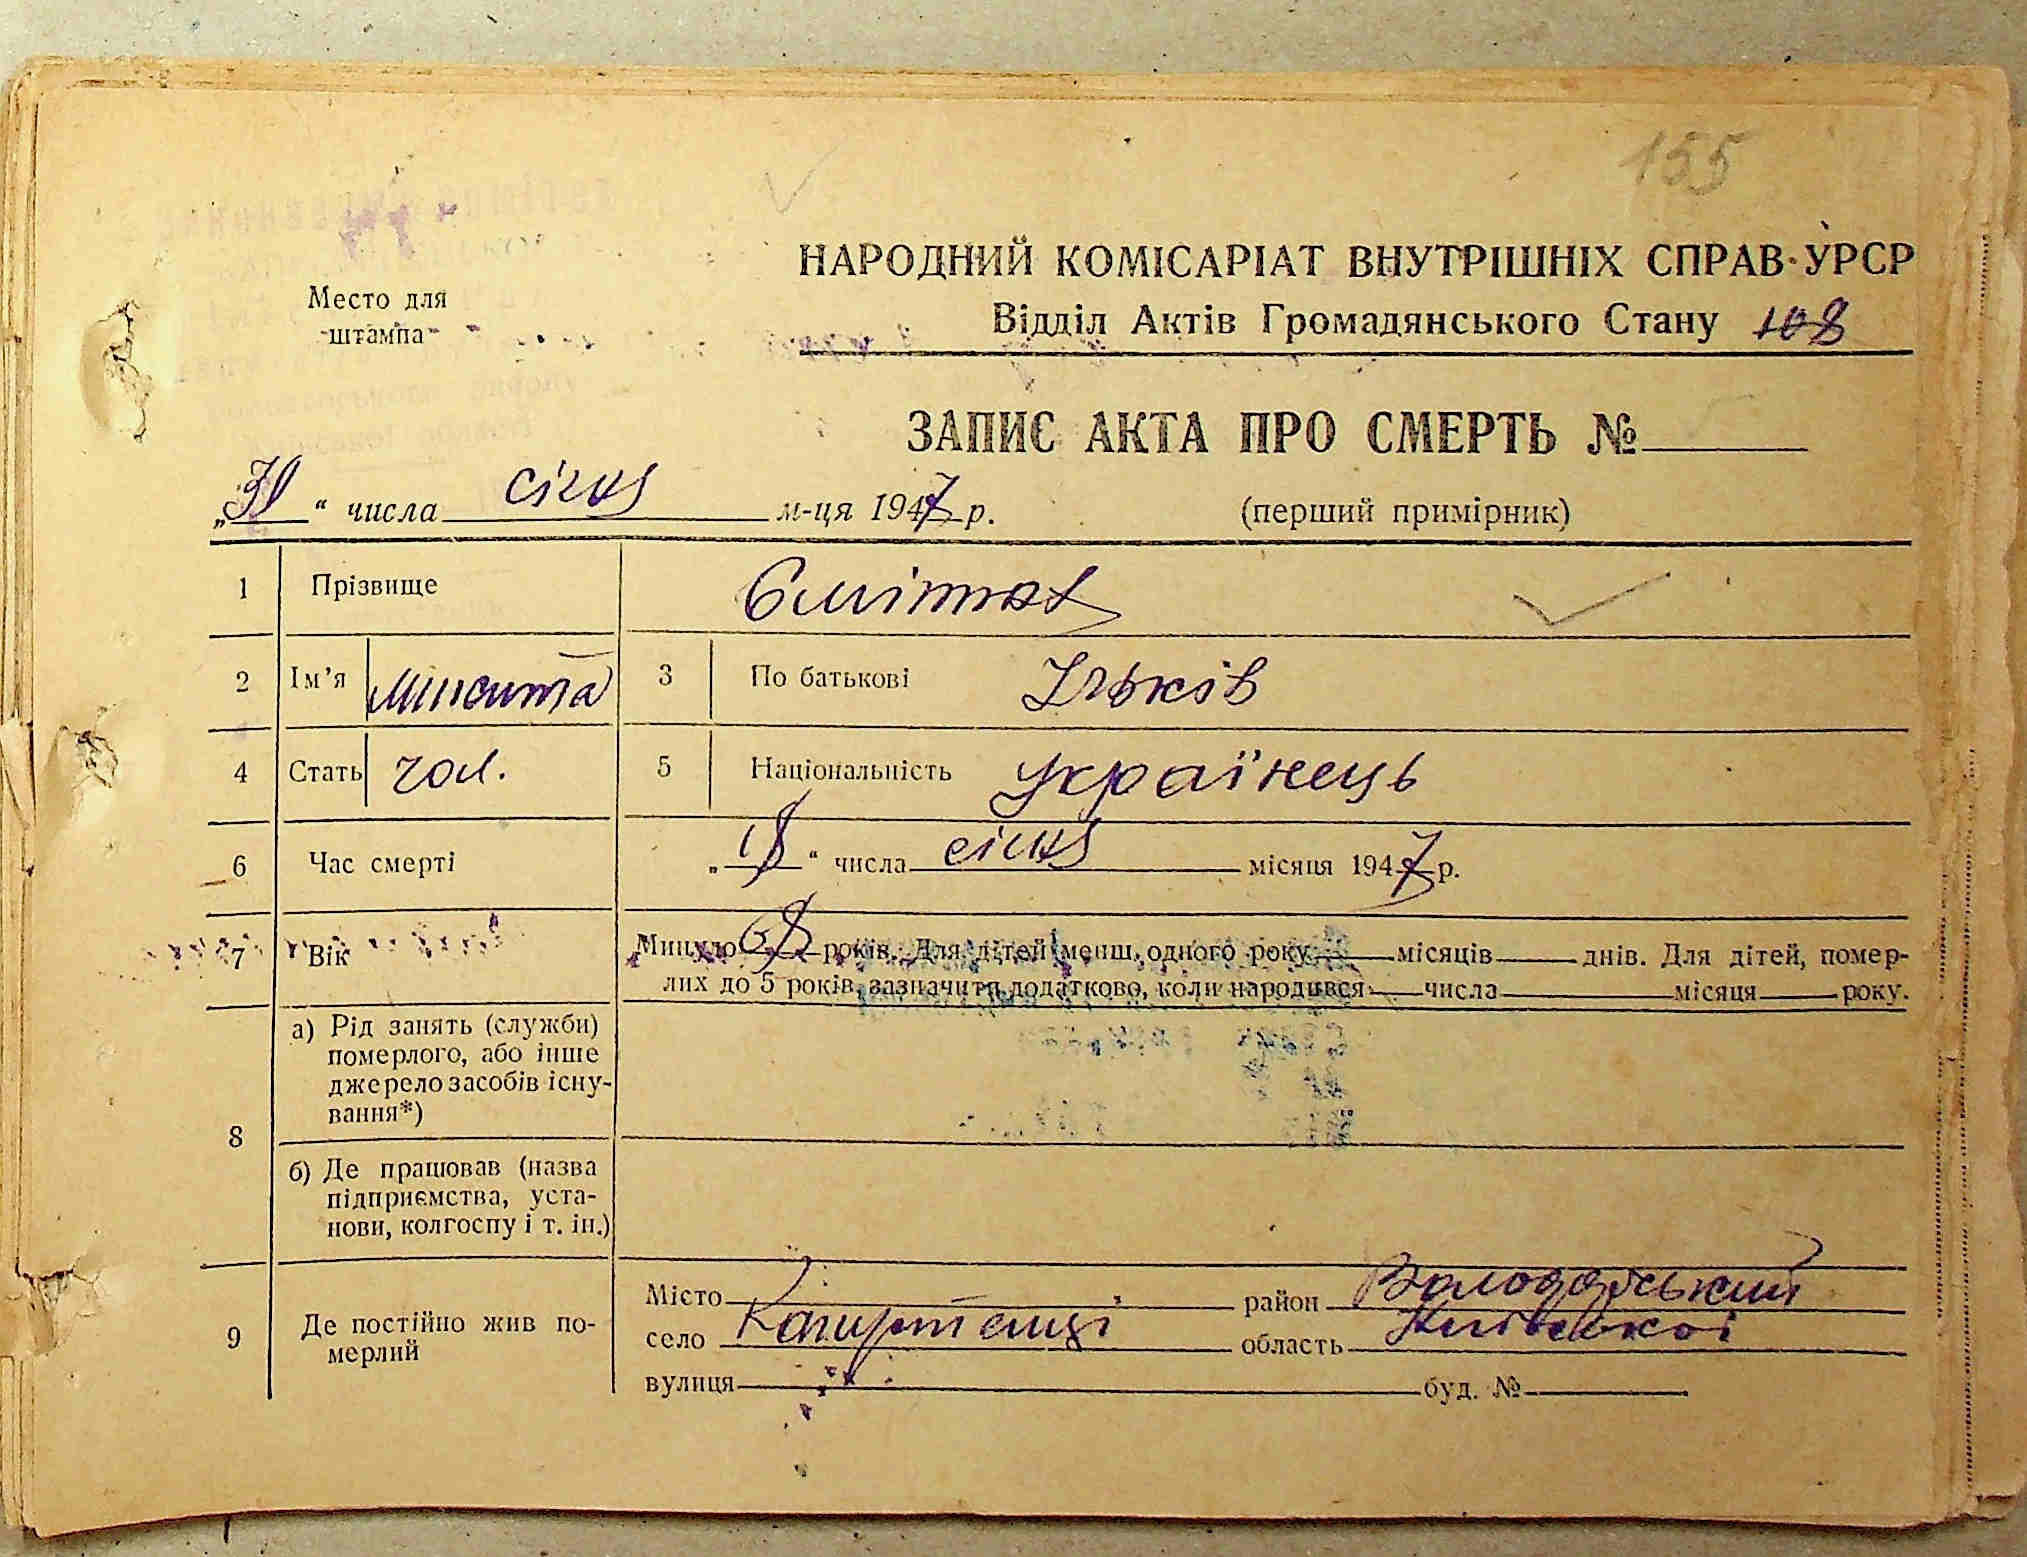 155
НАРОДНИЙ КОМІСАРІАТ ВНУТРІШНІХ СПРАВ УРСР
Место для
штампа
Відділ Актів Громадянського Стану 108
ЗАПИС АКТА ПРО СМЕРТЬ №
„ “ числа січня м-ця 1947 р. (перший примірник)
1 Прізвище
2 Ім’я Микита 3 По батькові Ільків
4 Стать чол. 5 Національність українець
6 Час смерті „18“ числа січня місяця 1947 р.
7 Вік Минуло 68 років. Для дітей менш. одного року місяців днів. Для дітей, помер-
лих до 5 років, зазначити додатково, коли народився числа місяця року.
8 а) Рід занять (служби)
померлого, або інше
джерело засобів існу-
вання*)
б) Де працював (назва
підприємства, уста-
нови, колгоспу і т. ін.)
9 Де постійно жив по-
мерлий
Місто район Володарський
село область Київської
вулиця буд. №